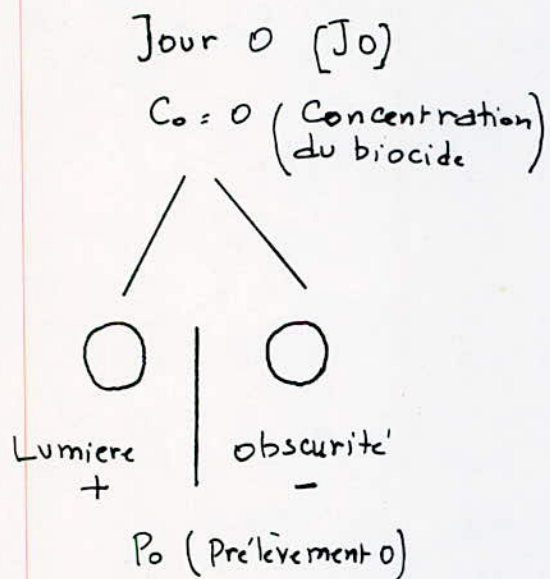 Jour 0 [J0]
C₀ = 0 (Concentration
du biocide)
Lumiere obscurité
+ -
P₀ (Prélèvement 0)